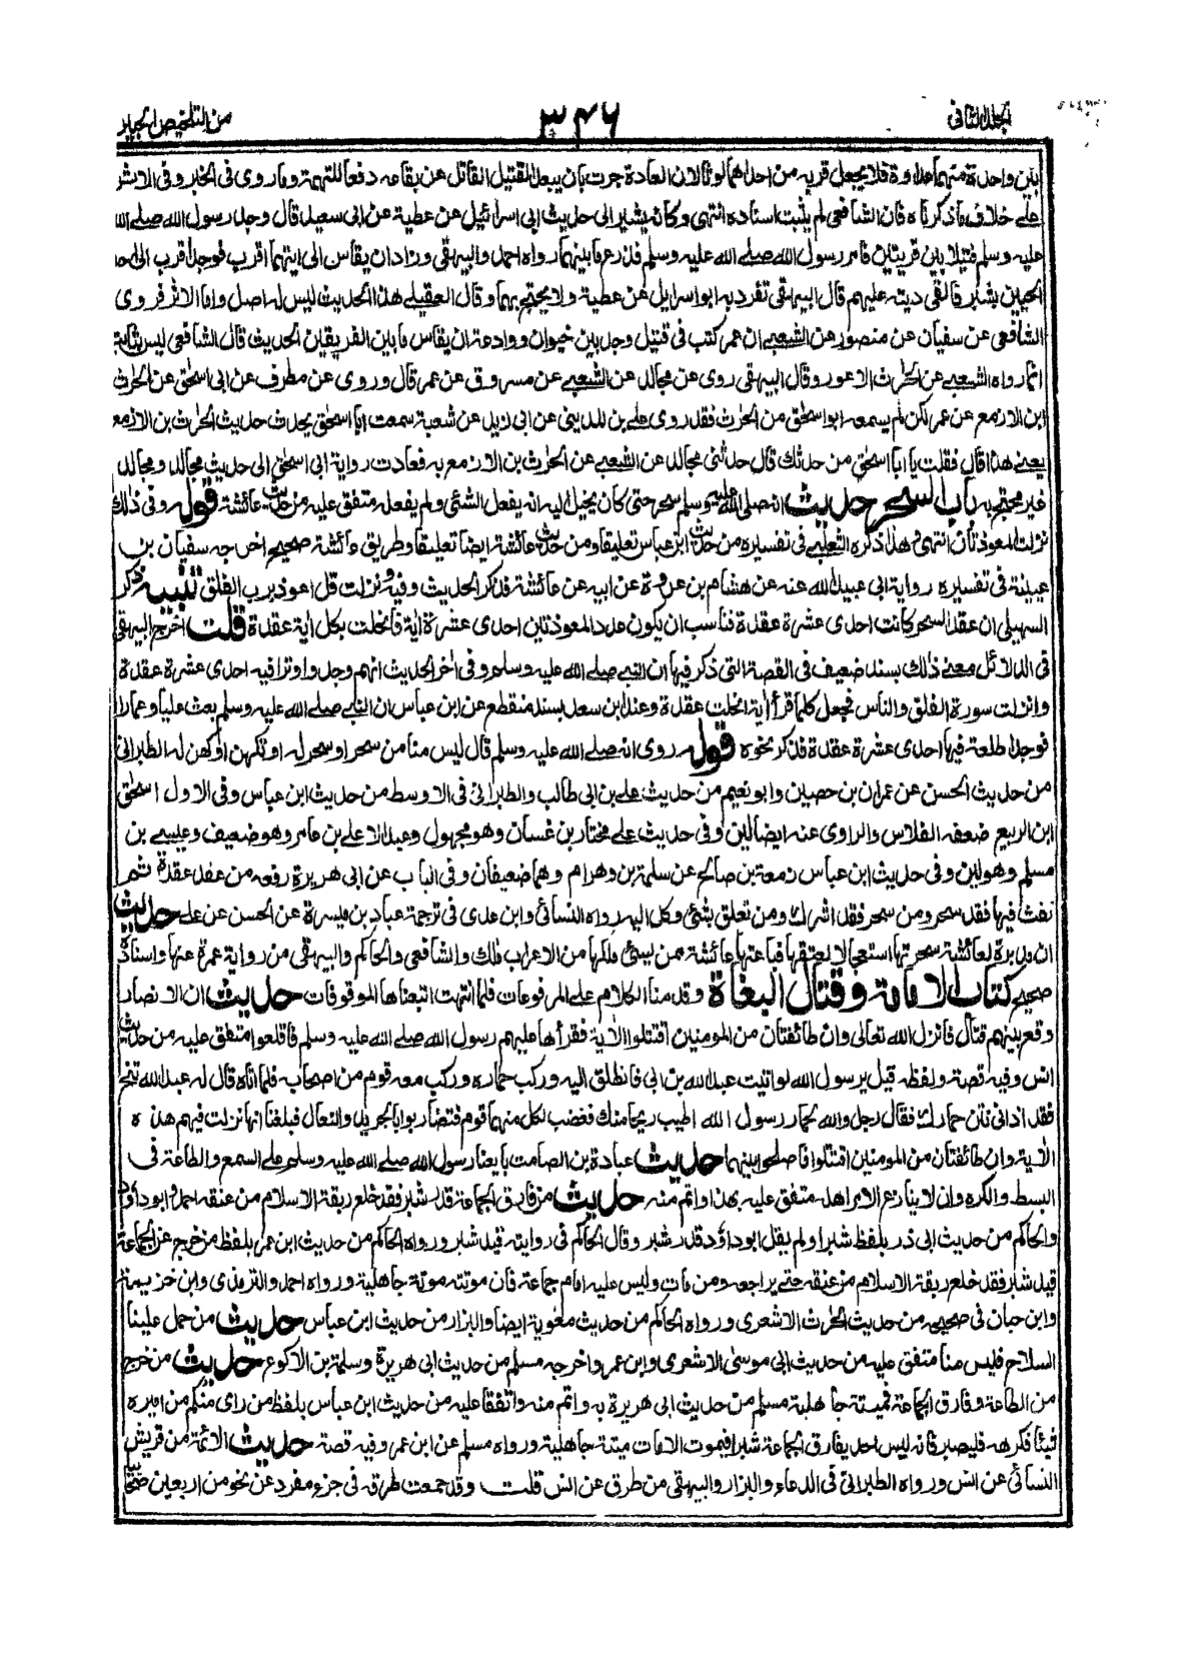 المجلد الثانى ٣٤٦ من التلخيص الحبير
بين واحدة منهما عداوة فلا يجعل قربه من احداهما لوثا لان العادة جرت بان يبعد القتيل القاتل عن بقاعه دفعا للتهمة وما روى فى الخبر وفى الاثر
على خلاف ما ذكرناه فان الشافعى لم يثبت اسناده انتهى وكانه يشير الى حديث ابى اسرائيل عن عطية عن ابى سعيد قال وجد رسول الله صلى الله
عليه وسلم قتيلا بين قريتين فامر رسول الله صلى الله عليه وسلم فذرع ما بينهما رواه احمد والبيهقى وزاد ان يقاس الى ايتهما اقرب فوجد اقرب الى احد
الحيين بشبر فالقى ديته عليهم قال البيهقى تفرد به ابو اسرايل عن عطية ولا يحتج بهما وقال العقيلى هذا الحديث ليس له اصل واما الاثر فروى
الشافعى عن سفيان عن منصور عن الشعبى ان عمر كتب فى قتيل وجد بين خيوان ووادعة ان يقاس ما بين القريتين الحديث قال الشافعى ليس بثابت
انما رواه الشعبى عن الحرث الاعور وقال البيهقى روى عن مجالد عن الشعبى عن مسروق عن عمر قال وروى عن مطرف عن ابى اسحق عن الحرث
ابن الازمع عن عمر لكن لم يسمعه ابو اسحق من الحرث فقد روى على بن المدينى عن ابى زيد عن شعبة سمعت ابا اسحق يحدث حديث الحرث بن الازمع
يعنى هذا قال فقلت يا ابا اسحق من حدثك قال حدثنى مجالد عن الشعبى عن الحرث بن الازمع به فعادت رواية ابى اسحق الى حديث مجالد ومجالد
غير محتج به باب السحر حديث انه صلى الله عليه وسلم سحر حتى كان يخيل اليه انه يفعل الشئى ولم يفعله متفق عليه من حديث عائشة قوله وفى ذلك
نزلت المعوذتان انتهى وهذا ذكره الثعلبى فى تفسيره من حديث ابن عباس تعليقا ومن حديث عائشة ايضا تعليقا وطريق عائشة صحيح اخرجه سفيان بن
عيينة فى تفسيره رواية ابى عبيد الله عنه عن هشام بن عروة عن ابيه عن عائشة فذكر الحديث وفيه ونزلت قل اعوذ برب الفلق تنبيه ذكر
السهيلى ان عقد السحر كانت احدى عشرة عقدة فناسب ان يكون عدد المعوذتين احدى عشرة اية فانحلت بكل اية عقدة قلت اخرج البيهقى
فى الدلائل معنى ذلك بسند ضعيف فى القصة التى ذكر فيها ان النبى صلى الله عليه وسلم وفى اخر الحديث انهم وجدوا وترا فيه احدى عشرة عقدة
وانزلت سورة الفلق والناس فجعل كلما قرأ اية انحلت عقدة وعند ابن سعد بسند منقطع عن ابن عباس ان النبى صلى الله عليه وسلم بعث عليا وعمارا
فوجدا طلعة فيها احدى عشرة عقدة فذكر نحوه قوله روى انه صلى الله عليه وسلم قال ليس منا من سحر او سحر له او تكهن او تكهن له الطبرانى
من حديث الحسن عن عمران بن حصين وابو نعيم من حديث على بن ابى طالب والطبرانى فى الاوسط من حديث ابن عباس وفى الاول اسحق
ابن الربيع ضعفه الفلاس والراوى عنه ايضا لين وفى حديث على مختار بن غسان وهو مجهول وعبد الاعلى بن عامر وهو ضعيف وعيسى بن
مسلم وهو لين وفى حديث ابن عباس زمعة بن صالح عن سلمة بن وهرام وهما ضعيفان وفى الباب عن ابى هريرة رفعه من عقد عقدة ثم
نفث فيها فقد سحر ومن سحر فقد اشرك ومن تعلق بشئ وكل اليه رواه النسائى وابن عدى فى ترجمة عباد بن ميسرة عن الحسن عن على حديث
ان مدبرة لعائشة سحرتها استعجالا لعتقها فباعتها عائشة ممن يسئ ملكها من الاعراب ملك والشافعى والحاكم والبيهقى من رواية عمرة عنها واسناده
صحيح كتاب الامامة وقتال البغاة وقدمنا الكلام على المرفوعات فلما انتهت اتبعناها الموقوفات حديث ان الانصار
وقع بينهم قتال فانزل الله تعالى وان طائفتان من المومنين اقتتلوا الاية فقرأها عليهم رسول الله صلى الله عليه وسلم فاقلعوا متفق عليه من حديث
انس وفيه قصة ولفظه قيل يرسول الله لو اتيت عبد الله بن ابى فانطلق اليه وركب حماره وركب معه قوم من اصحابه فلما اتاه قال له عبد الله تنح
فقد اذانى نتن حمارك فقال رجل والله لحمار رسول الله اطيب ريحا منك فغضب لكل منهما قوم فتضاربوا بالجريد والنعال فبلغنا انها نزلت فيهم هذه
الاية وان طائفتان من المومنين اقتتلوا فاصلحوا بينهما حديث عبادة بن الصامت بايعنا رسول الله صلى الله عليه وسلم على السمع والطاعة فى
البسط والكره وان لا ينازع الامر اهله متفق عليه بهذا واتم منه حديث من فارق الجماعة قدر شبر فقد خلع ربقة الاسلام من عنقه احمد وابو داؤد
والحاكم من حديث ابى ذر بلفظ شبرا ولم يقل ابو داؤد قدر شبر وقال الحاكم فى روايته قيد شبر ورواه الحاكم من حديث ابن عمر بلفظ من خرج عن الجماعة
قيد شبر فقد خلع ربقة الاسلام من عنقه حتى يراجعه ومن مات وليس عليه امام جماعة فان موتته موتة جاهلية ورواه احمد والترمذى وابن خزيمة
وابن حبان فى صحيحه من حديث الحرث الاشعرى ورواه الحاكم من حديث معوية ايضا والبزار من حديث ابن عباس حديث من حمل علينا
السلاح فليس منا متفق عليه من حديث ابى موسى الاشعرى وابن عمر واخرجه مسلم من حديث ابى هريرة وسلمة بن الاكوع حديث من خرج
من الطاعة وفارق الجماعة فميتة جاهلية مسلم من حديث ابى هريرة به واتم منه واتفقا عليه من حديث ابن عباس بلفظ من راى منكم من اميره
شيئا فكرهه فليصبر فانه ليس احد يفارق الجماعة شبرا فيموت الا مات ميتة جاهلية ورواه مسلم عن ابن عمر وفيه قصة حديث الائمة من قريش
النسائى عن انس ورواه الطبرانى فى الدعاء والبزار والبيهقى من طرق عن انس قلت وقد جمعت طرقه فى جزء مفرد عن نحو من اربعين صحابيا